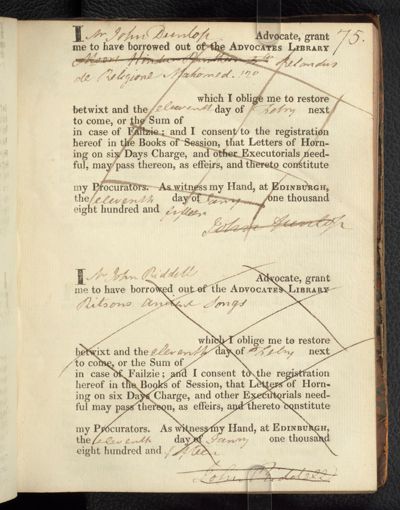 75.
I Mr John Dunlop Advocate, grant
me to have borrowed out of the ADVOCATES LIBRARY
Moors Hindu Relandus
de Religione Mahomed. 120
which I oblige me to restore
betwixt and the eleventh day of Febry next
to come, or the Sum of
in case of Failzie; and I consent to the registration
hereof in the Books of Session, that Letters of Horn-
ing on six Days Charge, and other Executorials need-
ful, may pass thereon, as effeirs, and thereto constitute
my Procurators. As witness my Hand, at EDINBURGH,
the eleventh day of Janry one thousand
eight hundred and fifteen
John Dunlop
I Mr John Riddell Advocate, grant
me to have borrowed out of the ADVOCATES LIBRARY
Ritsons ancient Songs
which I oblige me to restore
betwixt and the eleventh day of Febry next
to come, or the Sum of
in case of Failzie; and I consent to the registration
hereof in the Books of Session, that Letters of Horn-
ing on six Days Charge, and other Executorials need-
ful may pass thereon, as effeirs, and thereto constitute
my Procurators. As witness my Hand, at EDINBURGH,
the eleventh day of Janry one thousand
eight hundred and fifteen
John Riddell